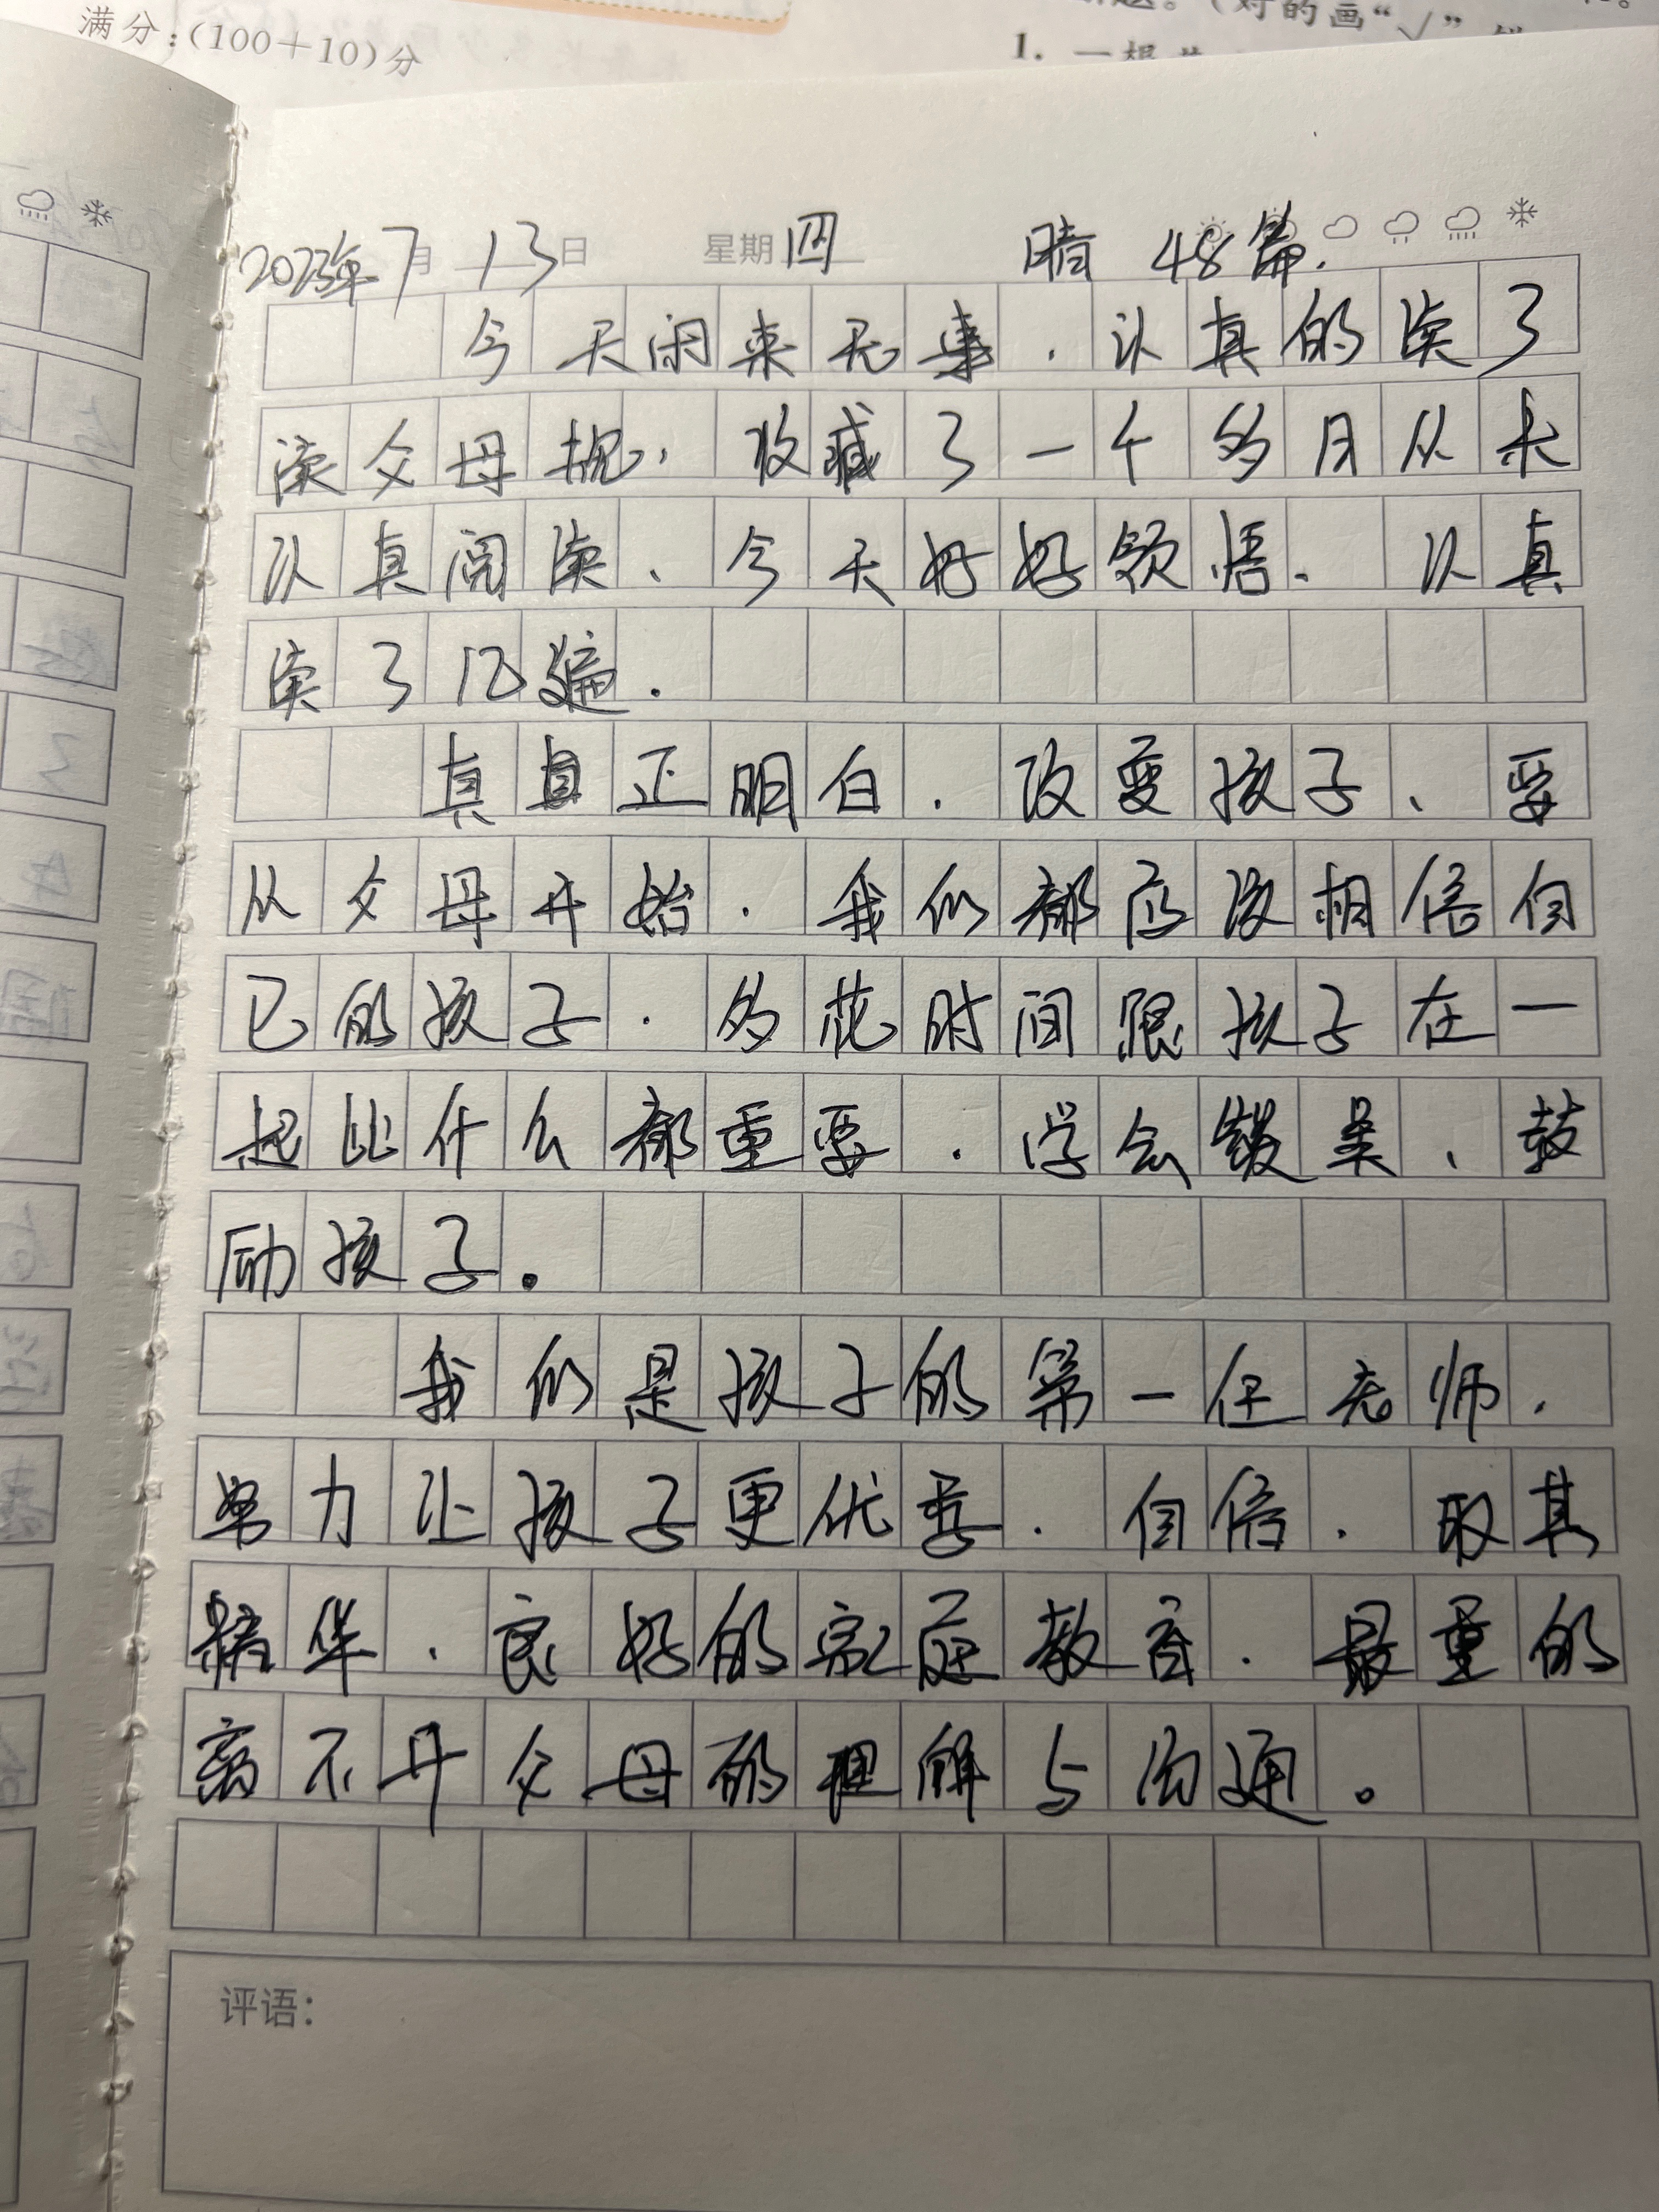 满分:(100+10)分
(对的画“√”
1. 一根
2023年7月13日 星期四 晴 48篇.
今天闲来无事.认真的读了
读父母规,收藏了一个多月从未
认真阅读、今天好好领悟.认真
读了几遍.
真真正明白.改变孩子、要
从父母开始.我们都应该相信自
己的孩子.多花时间跟孩子在一
起比什么都重要.学会赞美、鼓
励孩子。
我们是孩子的第一任老师.
努力让孩子更优秀.自信.取其
精华.良好的家庭教育.最重的
离不开父母的理解与沟通。
评语: